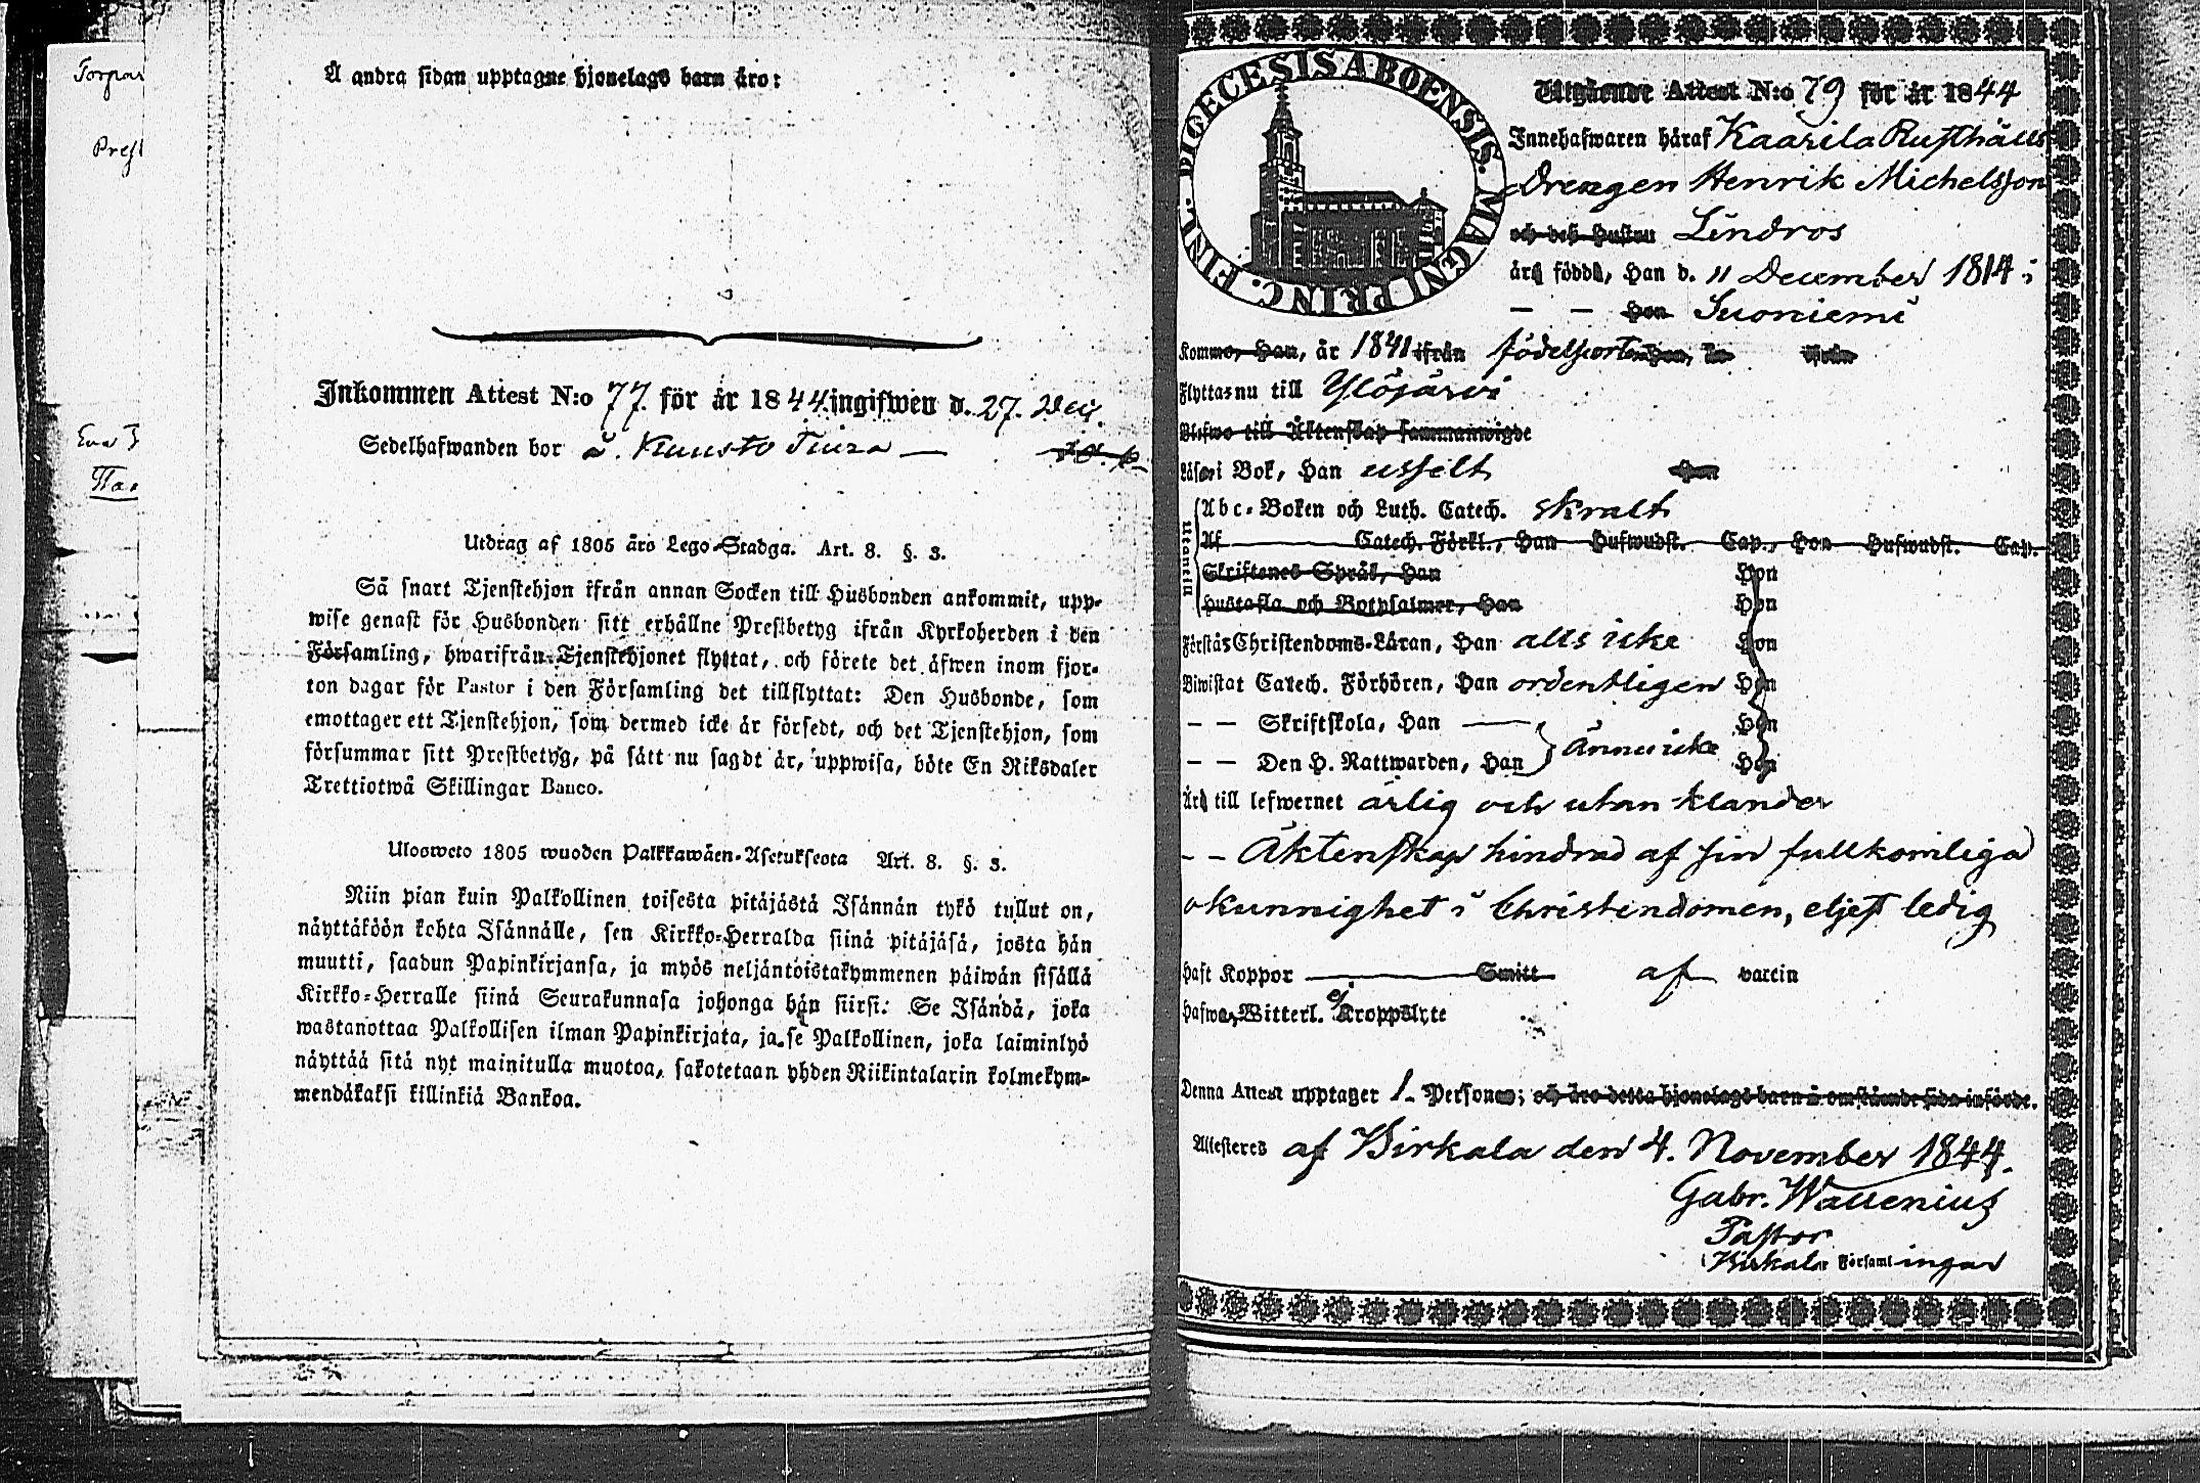 Torpar
Prest
Eva
Å andra sidan upptagne hjonelags barn äro:
Inkommen Attest N:o 77. för år 1844. ingifwen d. 27. Dec.
Sedelhafwanden bor å. Kuusto Tiura —
Utdrag af 1805 års Lego-Stadga. Art. 8. §. 3.
Så snart Tjenstehjon ifrån annan Socken till Husbonden ankommit, upp-
wise genast för Husbonden sitt erhållne Prestbetyg ifrån Kyrkoherden i den
Församling, hwarifrån Tjenstehjonet flyttat, och förete det äfwen inom fjor-
ton dagar för Pastor i den Församling det tillflyttat: Den Husbonde, som
emottager ett Tjenstehjon, som dermed icke är försedt, och det Tjenstehjon, som
försummar sitt Prestbetyg, på sätt nu sagdt är, uppwisa, böte En Riksdaler
Trettiotwå Skillingar Banco.
Ulosweto 1805 wuoden Palkkawäen-Asetuksesta Art. 8. §. 3.
Niin pian kuin Palkollinen toisesta pitäjästä Isännän tykö tullut on,
näyttäköön kohta Isännälle, sen Kirkko-Herralda siinä pitäjäsä, josta hän
muutti, saadun Papinkirjansa, ja myös neljäntoistakymmenen päiwän sisällä
Kirkko-Herralle siinä Seurakunnasa johonga hän siirsi: Se Isändä, joka
wastanottaa Palkollisen ilman Papinkirjata, ja se Palkollinen, joka laiminlyö
näyttää sitä nyt mainitulla muotoa, sakotetaan yhden Riikintalarin kolmekym-
mendäkaksi killinkiä Bankoa.
DIOECESIS ABOENSIS. MAGNI PRINC. FINL.
Utgående Attest N:o 79 för år 1844
Innehafwaren häraf Kaarila Rusthålls
Drengen Henrik Michelsson
och deß Hustru Lindros
äro födde, Han d. 11 December 1814 i
— — Hon Suoniemi
Kommo, Han, år 1841 ifrån födelseorten Hon, år ifrån
Flyttas nu till Ylöjärvi
Blefwo till Äktenskap sammanwigde
Läser i Bok, Han usselt Hon
Utanetill
Abc-Boken och Luth. Catech. skralt
Af Catech. Förkl., Han Hufwudst. Cap., Hon Hufwudst. Cap.
Skriftenes Språk, Han Hon
Hustafla och Botpsalmer, Han Hon
Förstås Christendoms-Läran, Han alls icke Hon
Biwistat Catech. Förhören, Han ordentligen Hon
— — Skriftskola, Han — Hon
— — Den H. Nattwarden, Han ännu icke Hon
Äro till lefwernet ärlig och utan klander
— — Äktenskap hindrad af sin fullkomliga
okunnighet i Christendomen, eljest ledig
Haft Koppor — Smitt af vaccin
Hafwa Witterl. ej Kroppslyte
Denna Attest upptager 1. Person; och äro detta hjonelags barn å omstående sida införde.
Attesteres af Birkala den 4. November 1844.
Gabr. Wallenius
Pastor
i Birkala Församlingar